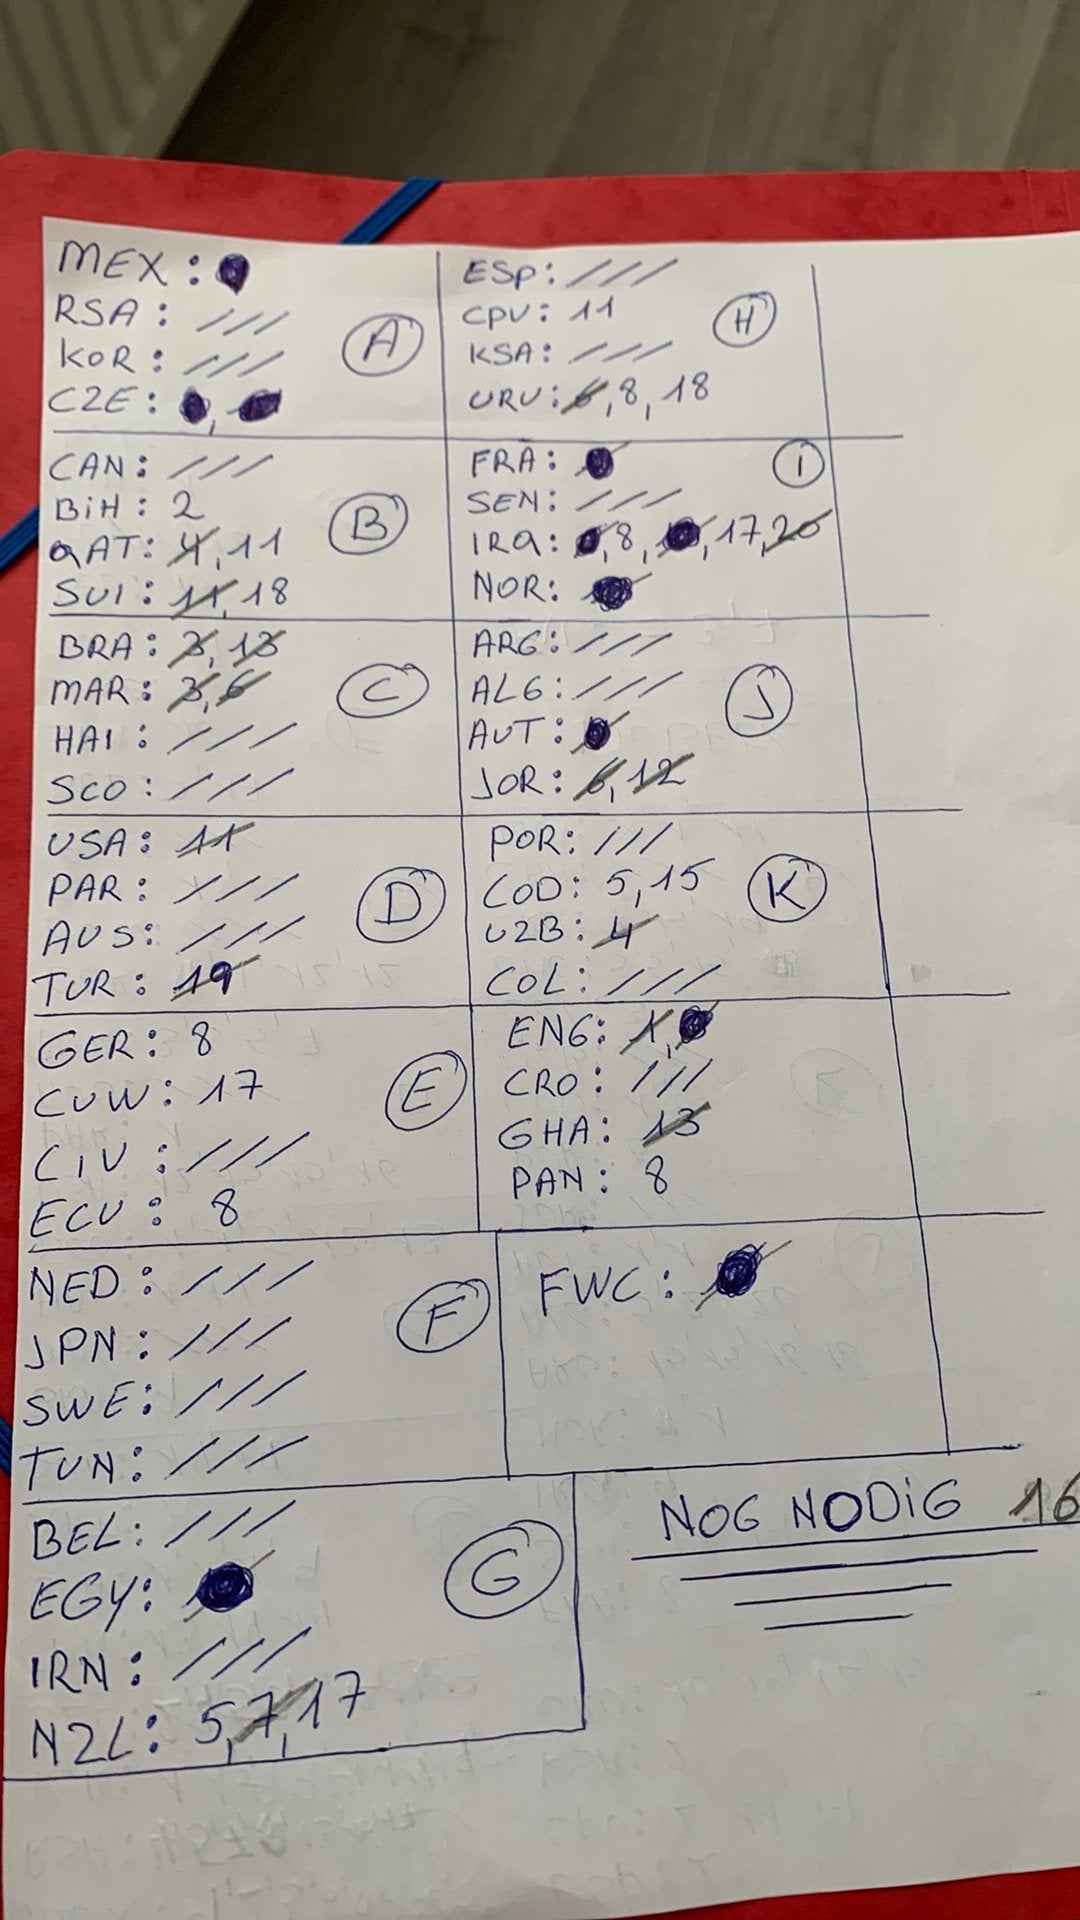 MEX:
RSA: ///
KOR: ///
CZE: ,
A
CAN: ///
BiH: 2
QAT: 4, 11
SUI: 11, 18
B
BRA: 3, 13
MAR: 3, 6
HAI: ///
SCO: ///
C
USA: 11
PAR: ///
AUS: ///
TUR: 19
D
GER: 8
CUW: 17
CIV: ///
ECU: 8
E
NED: ///
JPN: ///
SWE: ///
TUN: ///
F
BEL: ///
EGY:
IRN: ///
NZL: 5, 7, 17
G
ESP: ///
CPV: 11
KSA: ///
URU: 6, 8, 18
H
FRA:
SEN: ///
IRQ: , 8, , 17, 20
NOR:
I
ARG: ///
ALG: ///
AUT:
JOR: 6, 12
J
POR: ///
COD: 5, 15
UZB: 4
COL: ///
K
ENG: 1,
CRO: ///
GHA: 13
PAN: 8
FWC:
NOG NODiG 16